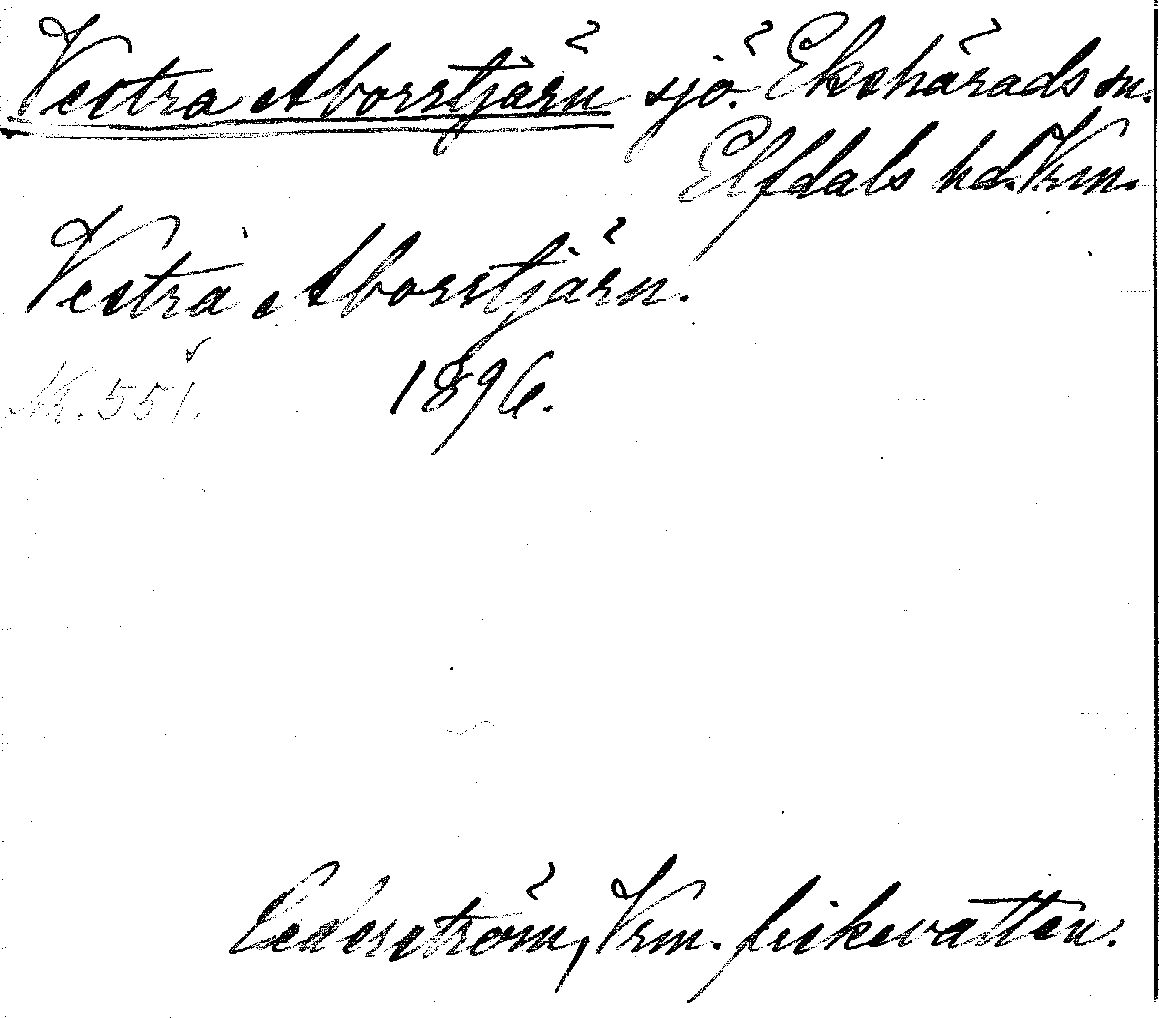 Vestra Aborrtjärn sjö. Ekshärads sn.
Elfdals hd. Vrm.
Vestra Aborrtjärn.
1896.
Nr. 551.
Cederström, Vrm. fiskevatten.